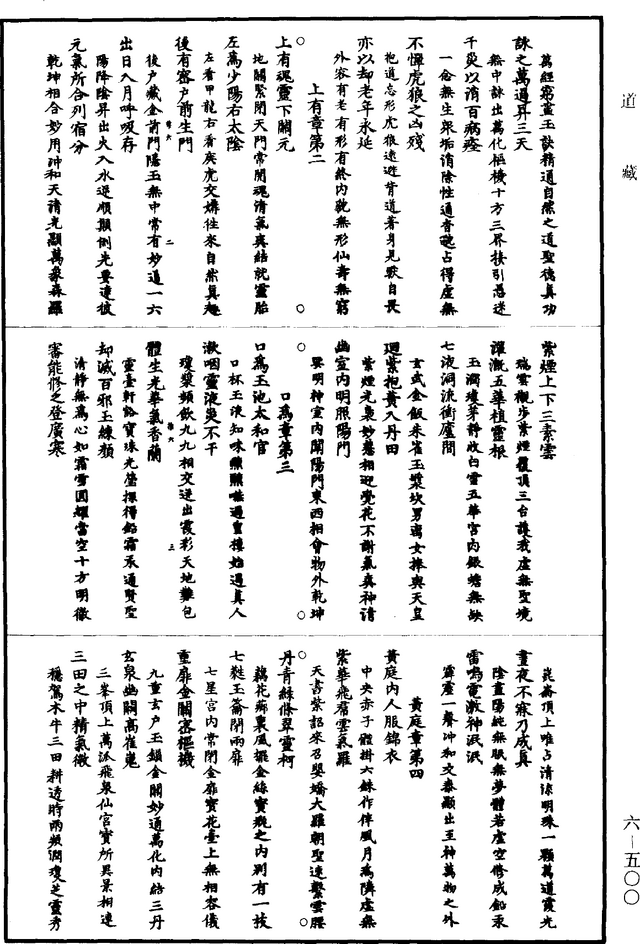 道藏
萬經第蓋玉訣精通自然之道聖德真功
詠之萬過昇三天
無中詠出萬化樞機十方三界接引愚迷
千災以消百病痊
一念無生眾垢消除性通杳默占得虛無
不憚虎狼之凶殘
抱道忘形虎狼遠避背道著身見獸自畏
亦以却老年永延
外容有老有形有終內貌無形仙壽無窮
上有章第二
上有魂靈下關元
地關緊閉天門常開魂清氣爽結就靈胎
左為少陽右太陰
左看甲龍右看庚虎交媾往來自然真趣
後有密戶前生門
後戶藏金前門隱玉無中常有妙通一六
出日入月呼吸存
陽降陰昇出火入水逆順顛倒光要連披
元氣所合列宿分
乾坤相合妙用沖和天清光顯萬象森羅
紫煙上下三素雲
瑞雲觀步紫煙覆頂三台護我虛無聖境
灌溉五華植靈根
玉澗瓊芽靜收白雪五華宮內銀蟾無缺
七液洞流衝廬間
玄武金飯朱雀玉漿坎男离女捧與天皇
迴紫抱黃入丹田
紫煙光裏妙態相迎覺花不謝氣爽神清
幽室內明照陽門
異明神室內開陽門東西相會物外乾坤
口為章第三
口為玉池太和官
口杯玉液知味嚥嚥嗞過重樓始過真人
漱咽靈液災不干
瓊漿頻飲九九相交迸出霞彩天地難包
體生光華氣香蘭
靈臺軒豁寶珠光瑩撰得鉛霜永通賢聖
却滅百邪玉練顏
清靜無為心如霜雪圓耀當空十方明徹
審能修之登廣寒
崑崙頂上唯占清涼明珠一顆萬道霞光
晝夜不寐乃成真
陰盡陽純無眠無夢體若虛空修成鉛汞
雷鳴電激神泯泯
霹靂一聲沖和交泰顯出至神萬物之外
黃庭章第四
黃庭內人服錦衣
中央赤子體掛六銖作伴風月為隣虛無
紫華飛裙雲氣羅
天書紫詔來召嬰嬌大羅朝聖速繫雲腰
丹青綠條翠靈柯
藕花葉裏風擺金絲寶瓶之內別有一枝
七蕤玉籥閉兩扉
七星宮內常閉金扉寶花臺上無相容儀
重扉金關密樞機
九重玄戶玉鎖金關妙通萬化內結三丹
玄泉幽關高崔嵬
三峯頂上萬派飛泉仙宮寶所異景相連
三田之中精氣微
穩駕木牛三田耕透時雨頻潤瓊芝靈秀
六—五〇〇